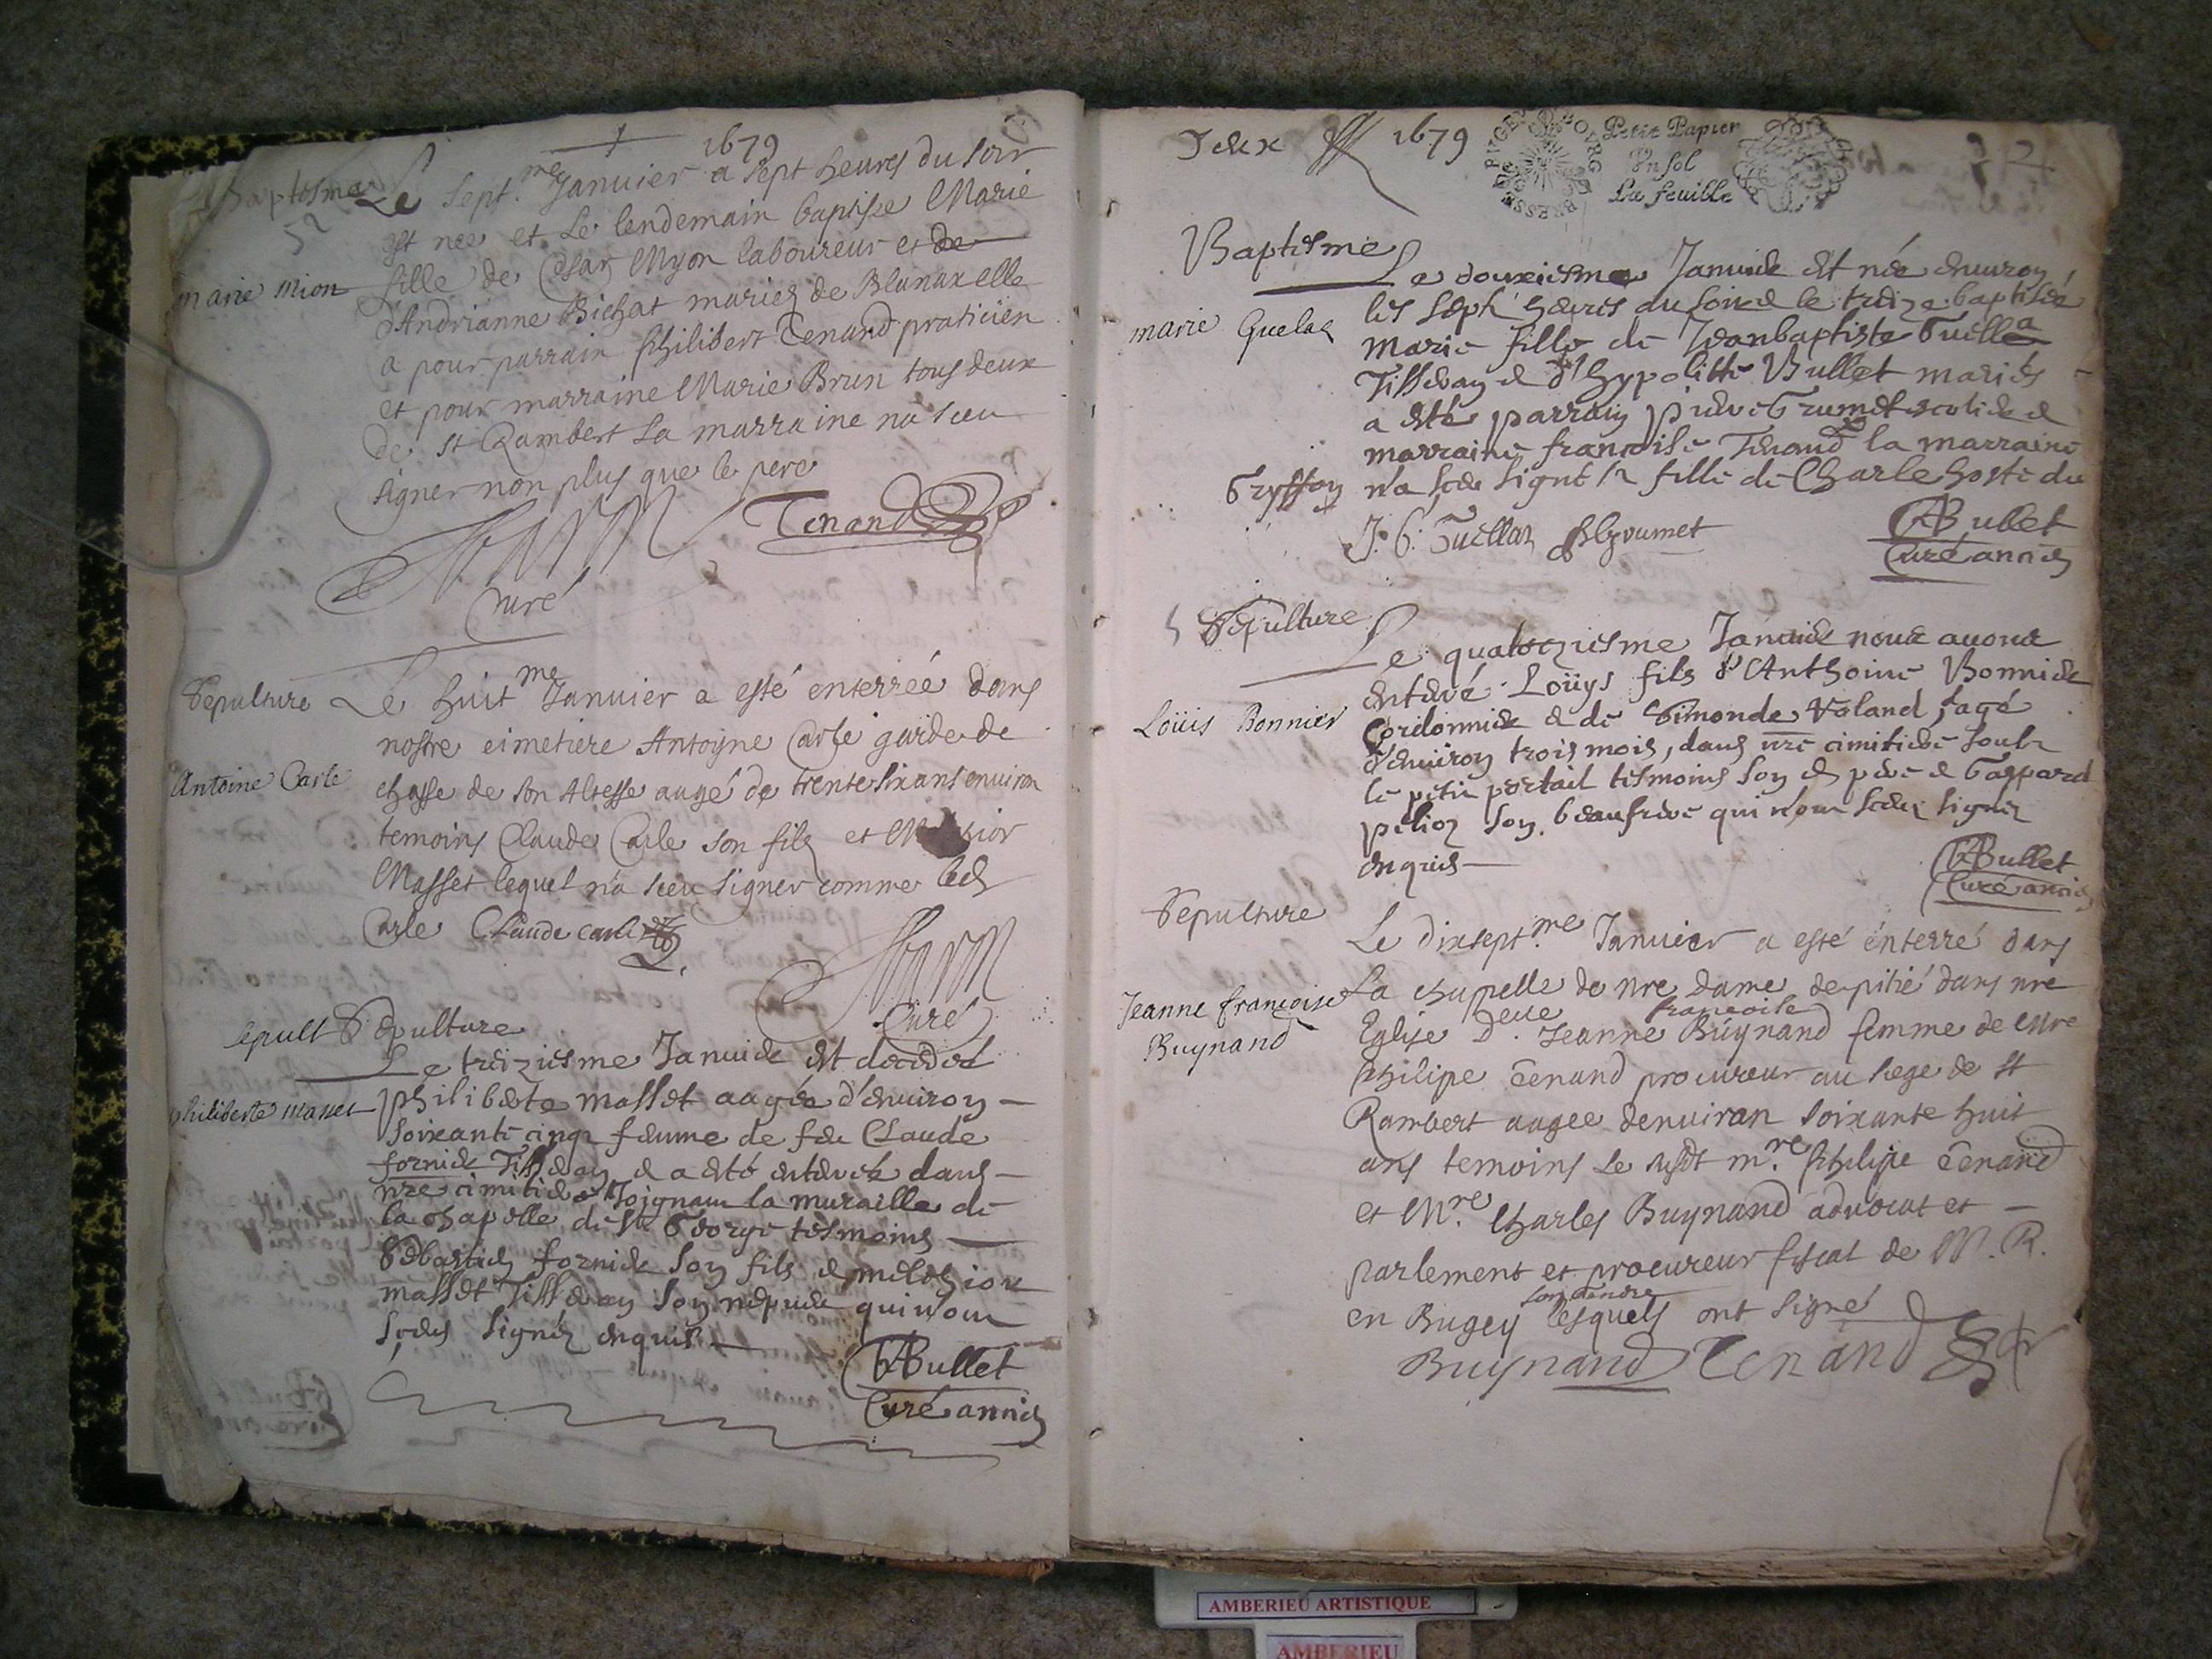 1679
Baptesme Le sept.me Janvier a sept heures du soir
est nee et le lendemain baptisee Marie
marie Mion fille de Cesar Myon laboureur et de
d'Andrianne Bichat mariez de Blanaz elle
a pour parrain Philibert Tenand praticien
et pour marraine Marie Brun tous deux
de St Rambert La marraine na sceu
signer non plus que le pere
Tenand
Curé
Sepulture Le huit.me Janvier a esté enterrée dans
nostre cimetiere Antoyne Carle garde de
Antoine Carle chasse de son Altesse augé de trente six ans environ
temoins Claude Carle son fils et
Masset lequel n'a sceu signer comme led
Carle Claude carle
Curé
sepult Sepulture
Le treiziesme Janvier est decedee
philiberte masset philiberte masset aagée d'environ
soixante cinq femme de feu Claude
fornier Tisseran et a esté enterrée dans
nre cimitiere Joignant la muraille de
la chapelle de St George tesmoins
Sebastien fornier son fils et melchior
masset Tisseran son nepveu qui n'ont
sceu signer enquis
Bullet
Curé ancien
Deux 1679
Petit Papier
Un sol
La feuille
BRESSE
Baptesme
Le douxiesme Janvier est née environ
les sept heures du soir et le treize baptisée
marie Guelaz
Marie fille de Jeanbaptiste Guella
Tisseran et d'hypolitte Bullet mariés
a esté parrain pierre Grumet escolier et
marraine françoise Tenand la marraine
Gryffon n'a sceu signé fille de Charle hoste du
J. B. Guellaz Grumet
Bullet
Curé ancien
Sepulture
Le quatorziesme Janvier nous avons
enterré Loüys fils d'Anthoine Bonnier
Loüis Bonnier
Cordonnier et de Simonde Valand, agé
d'environ trois mois, dans nre cimitiere soubz
le petit portail tesmoins son d pere et Gaspard
pelioz son beaufrere qui n'ont sceu signer
enquis
Bullet
Curé ancien
Sepulture
Le dixsept.me Janvier a esté enterré dans
La chappelle de nre dame de pitié dans nre
Jeanne françoise
Buynand
françoise
Eglise D.elle Jeanne Buynand femme de Mre
Philipe Tenand procureur au siege de St
Rambert augee denviran soixante huit
ans temoins le susdt m.re Philipe Tenand
et M.re Charles Buynand advocat et
parlement et procureur fiscal de M. R.
son gendre
en Bugey lesquels ont signé
Buynand Tenand
AMBERIEU ARTISTIQUE
AMBERIEU